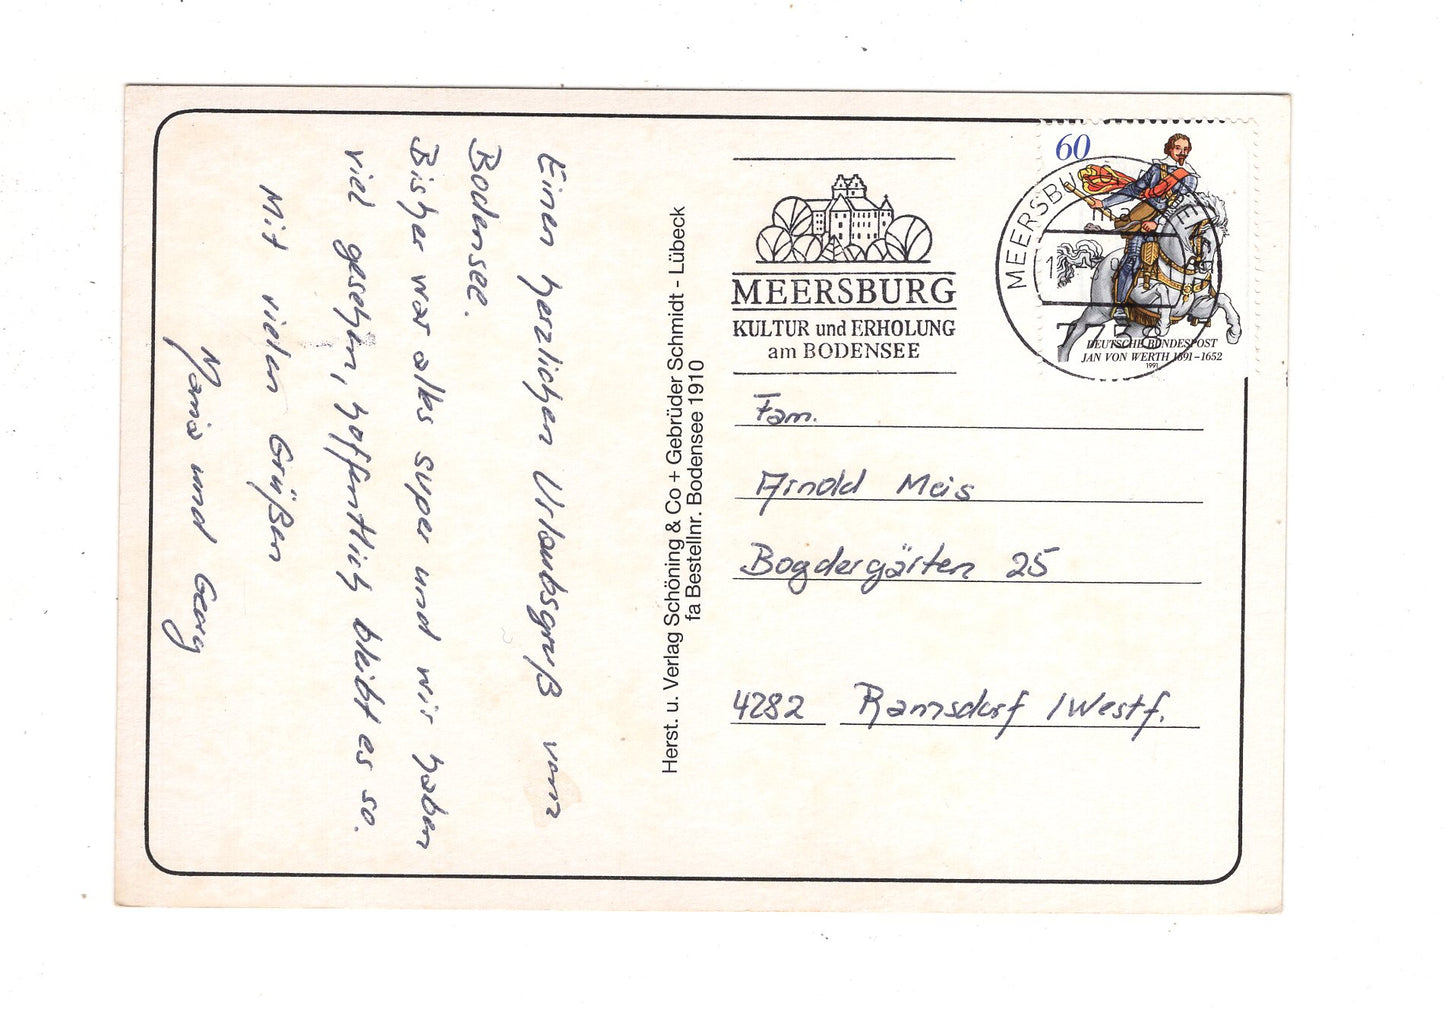 Einen herzlichen Urlaubsgruß vom
Bodensee.
Bisher war alles super und wir haben
viel gesehen, hoffentlich bleibt es so.
Mit vielen Grüßen
Maria und Georg
Herst. u. Verlag Schöning & Co + Gebrüder Schmidt - Lübeck
fa Bestellnr. Bodensee 1910
MEERSBURG
KULTUR und ERHOLUNG
am BODENSEE
60
DEUTSCHE BUNDESPOST
JAN VON WERTH 1591-1652
1991
MEERSBURG
Fam.
Arnold Meis
Bogdergärten 25
4282 Ramsdorf /Westf.